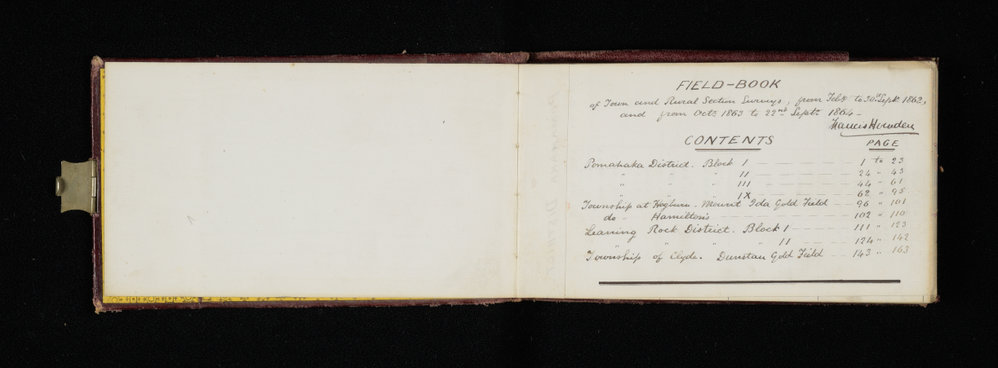 FIELD-BOOK
of Town and Rural Section Surveys, from Feby to 30th Sept. 1862,
and from Octr 1863 to 22nd Septr 1864 -
Francis Howden
CONTENTS PAGE
Pomahaka District. Block I 1 to 23
" " " II 24 " 43
" " " III 44 " 61
" " " IX 62 " 95
Township at Hogburn. Mount Ida Gold Field 96 " 101
do " Hamilton's 102 " 110
Leaning Rock District. Block I 111 " 123
" " " " II 124 " 142
Township of Clyde. Dunstan Gold Field 143 " 163